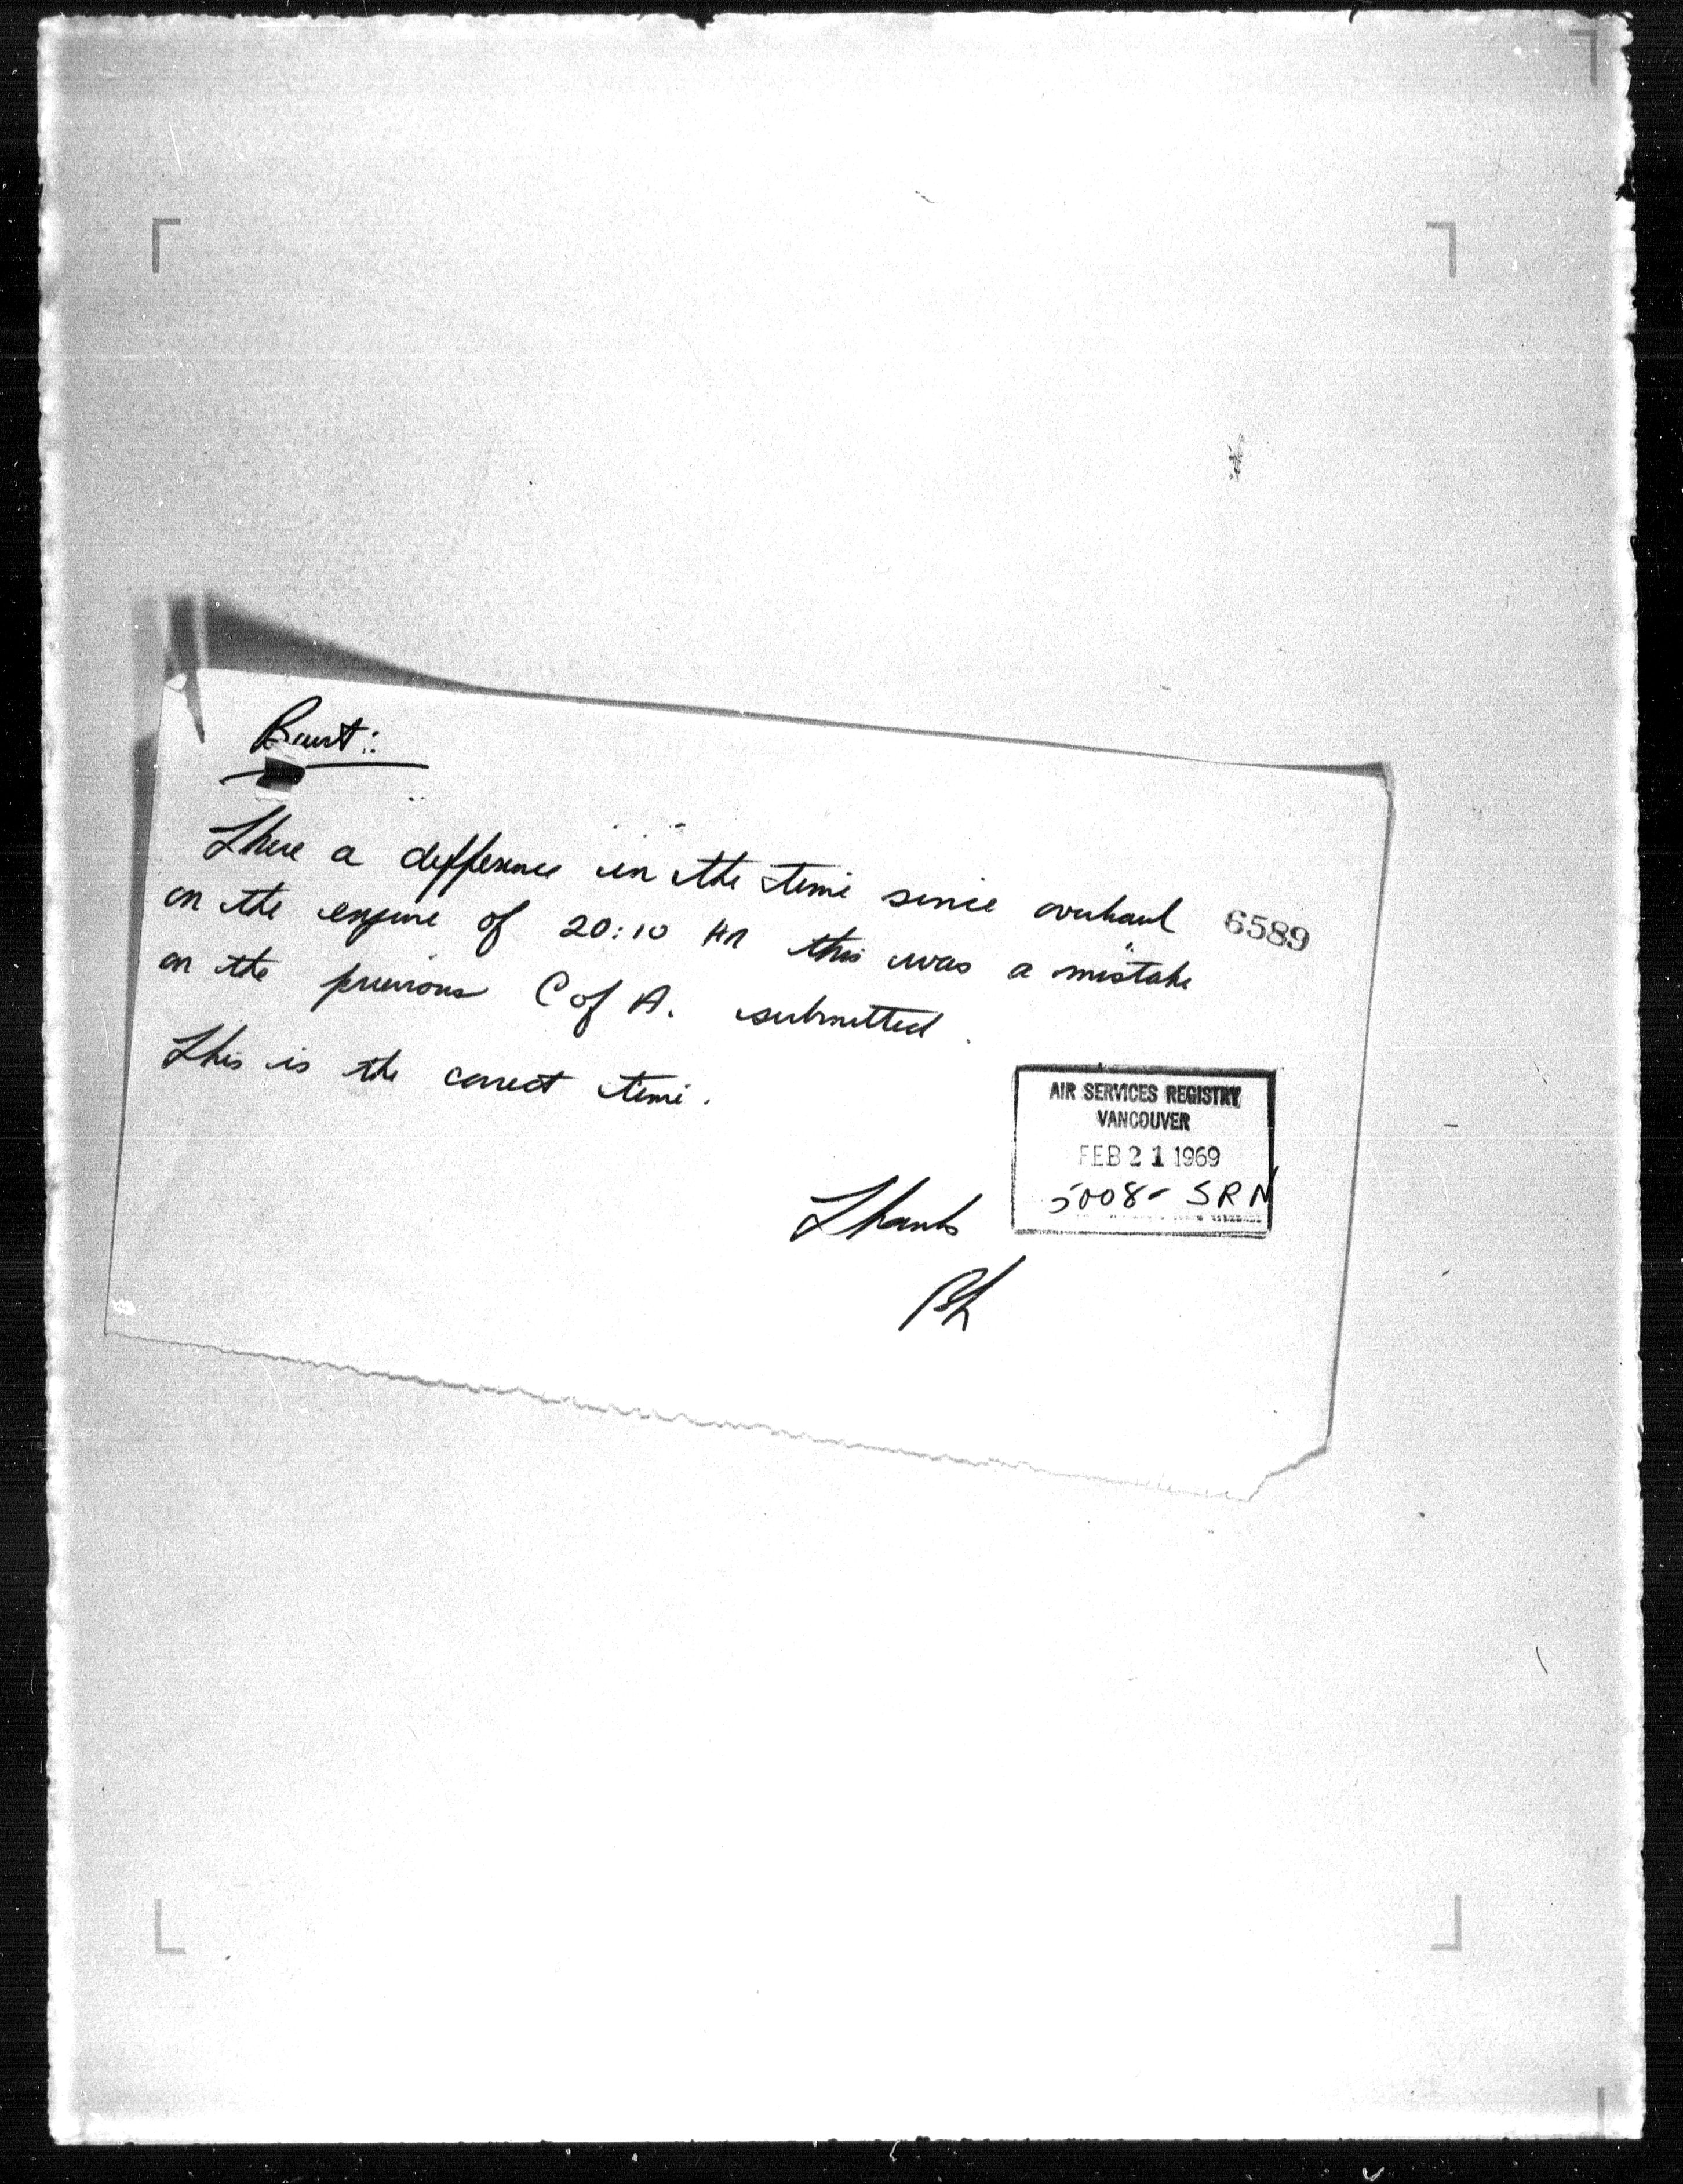 There a difference in the time since overhaul
6589
on the engine of 20:10 HR this was a mistake
on the previous C of A. submitted.
This is the correct time.
AIR SERVICES REGISTRY
VANCOUVER
FEB 21 1969
5008- SRN
Thanks